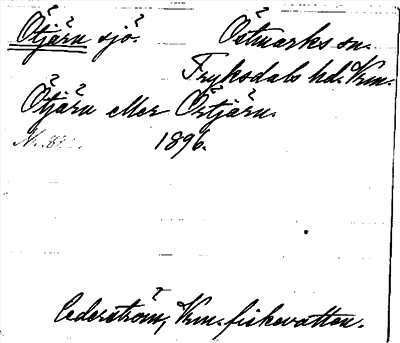 Ötjärn sjö. Östmarks sn.
Fryksdals hd. Vrm.
Ötjärn eller Örtjärn.
1896.
Cederström, Vrm. fiskevatten.